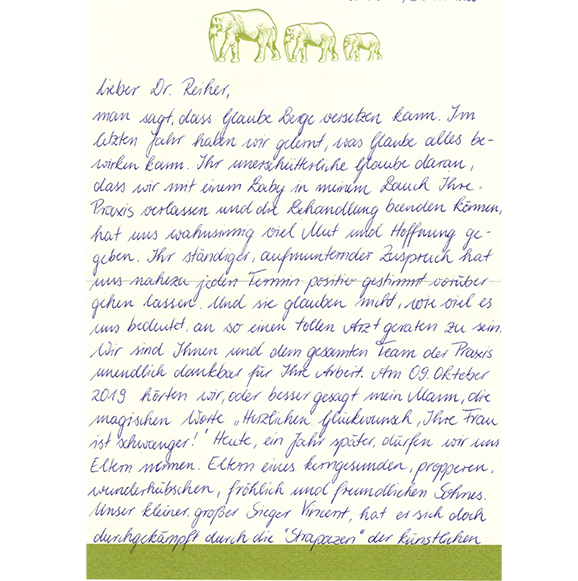 Lieber Dr. Reiher,
man sagt, dass Glaube Berge versetzen kann. Im
letzten Jahr haben wir gelernt, was Glaube alles be-
wirken kann. Ihr unerschütterliche Glaube daran,
dass wir mit einem Baby in meinem Bauch Ihre
Praxis verlassen und die Behandlung beenden können,
hat uns wahnsinnig viel Mut und Hoffnung ge-
geben. Ihr ständiger, aufmunternder Zuspruch hat
uns nahezu jeden Termin positiv gestimmt vorüber
gehen lassen. Und sie glauben nicht, wie viel es
uns bedeutet, an so einen tollen Arzt geraten zu sein.
Wir sind Ihnen und dem gesamten Team der Praxis
unendlich dankbar für Ihre Arbeit. Am 09. Oktober
2019 hörten wir, oder besser gesagt mein Mann, die
magischen Worte „Herzlichen Glückwunsch, Ihre Frau
ist schwanger!" Heute, ein Jahr später, dürfen wir uns
Eltern nennen. Eltern eines kerngesunden, propperen,
wunderhübschen, fröhlich und freundlichen Sohnes.
Unser kleiner, großer Sieger Vincent, hat er sich doch
durchgekämpft durch die "Strapazen" der künstlichen